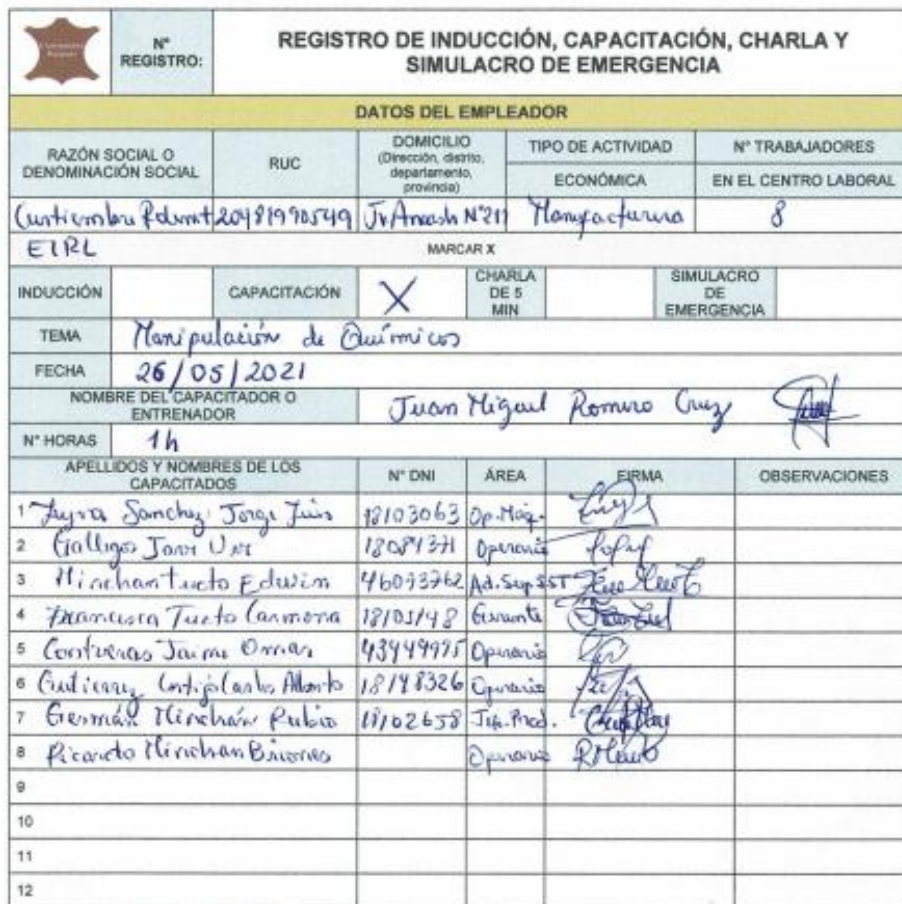 N° REGISTRO:
REGISTRO DE INDUCCIÓN, CAPACITACIÓN, CHARLA Y SIMULACRO DE EMERGENCIA
DATOS DEL EMPLEADOR
RAZÓN SOCIAL O DENOMINACIÓN SOCIAL
RUC
DOMICILIO (Dirección, distrito, departamento, provincia)
TIPO DE ACTIVIDAD ECONÓMICA
N° TRABAJADORES EN EL CENTRO LABORAL
20481990549 Jr Ancash N°211 Manufacturera 8
EIRL
MARCAR X
INDUCCIÓN CAPACITACIÓN X CHARLA DE 5 MIN SIMULACRO DE EMERGENCIA
TEMA Manipulación de Químicos
FECHA 26/05/2021
NOMBRE DEL CAPACITADOR O ENTRENADOR Juan Miguel Romero Cruz
N° HORAS 1h
APELLIDOS Y NOMBRES DE LOS CAPACITADOS N° DNI ÁREA FIRMA OBSERVACIONES
1 Sanchez Jorge 18103063 Op. Maq.
2 Operario
3 Minchan Tucto Edwin Ad. Sup SST
4 Francisca Tucto Carmona Gerente
5 Contreras Jaime Omar Operario
6 Gutierrez Carlos Alberto Operario
7 Germán Minchán Rubio 18102658 Jef. Prod.
8 Ricardo Minchan Briones Operario
9
10
11
12